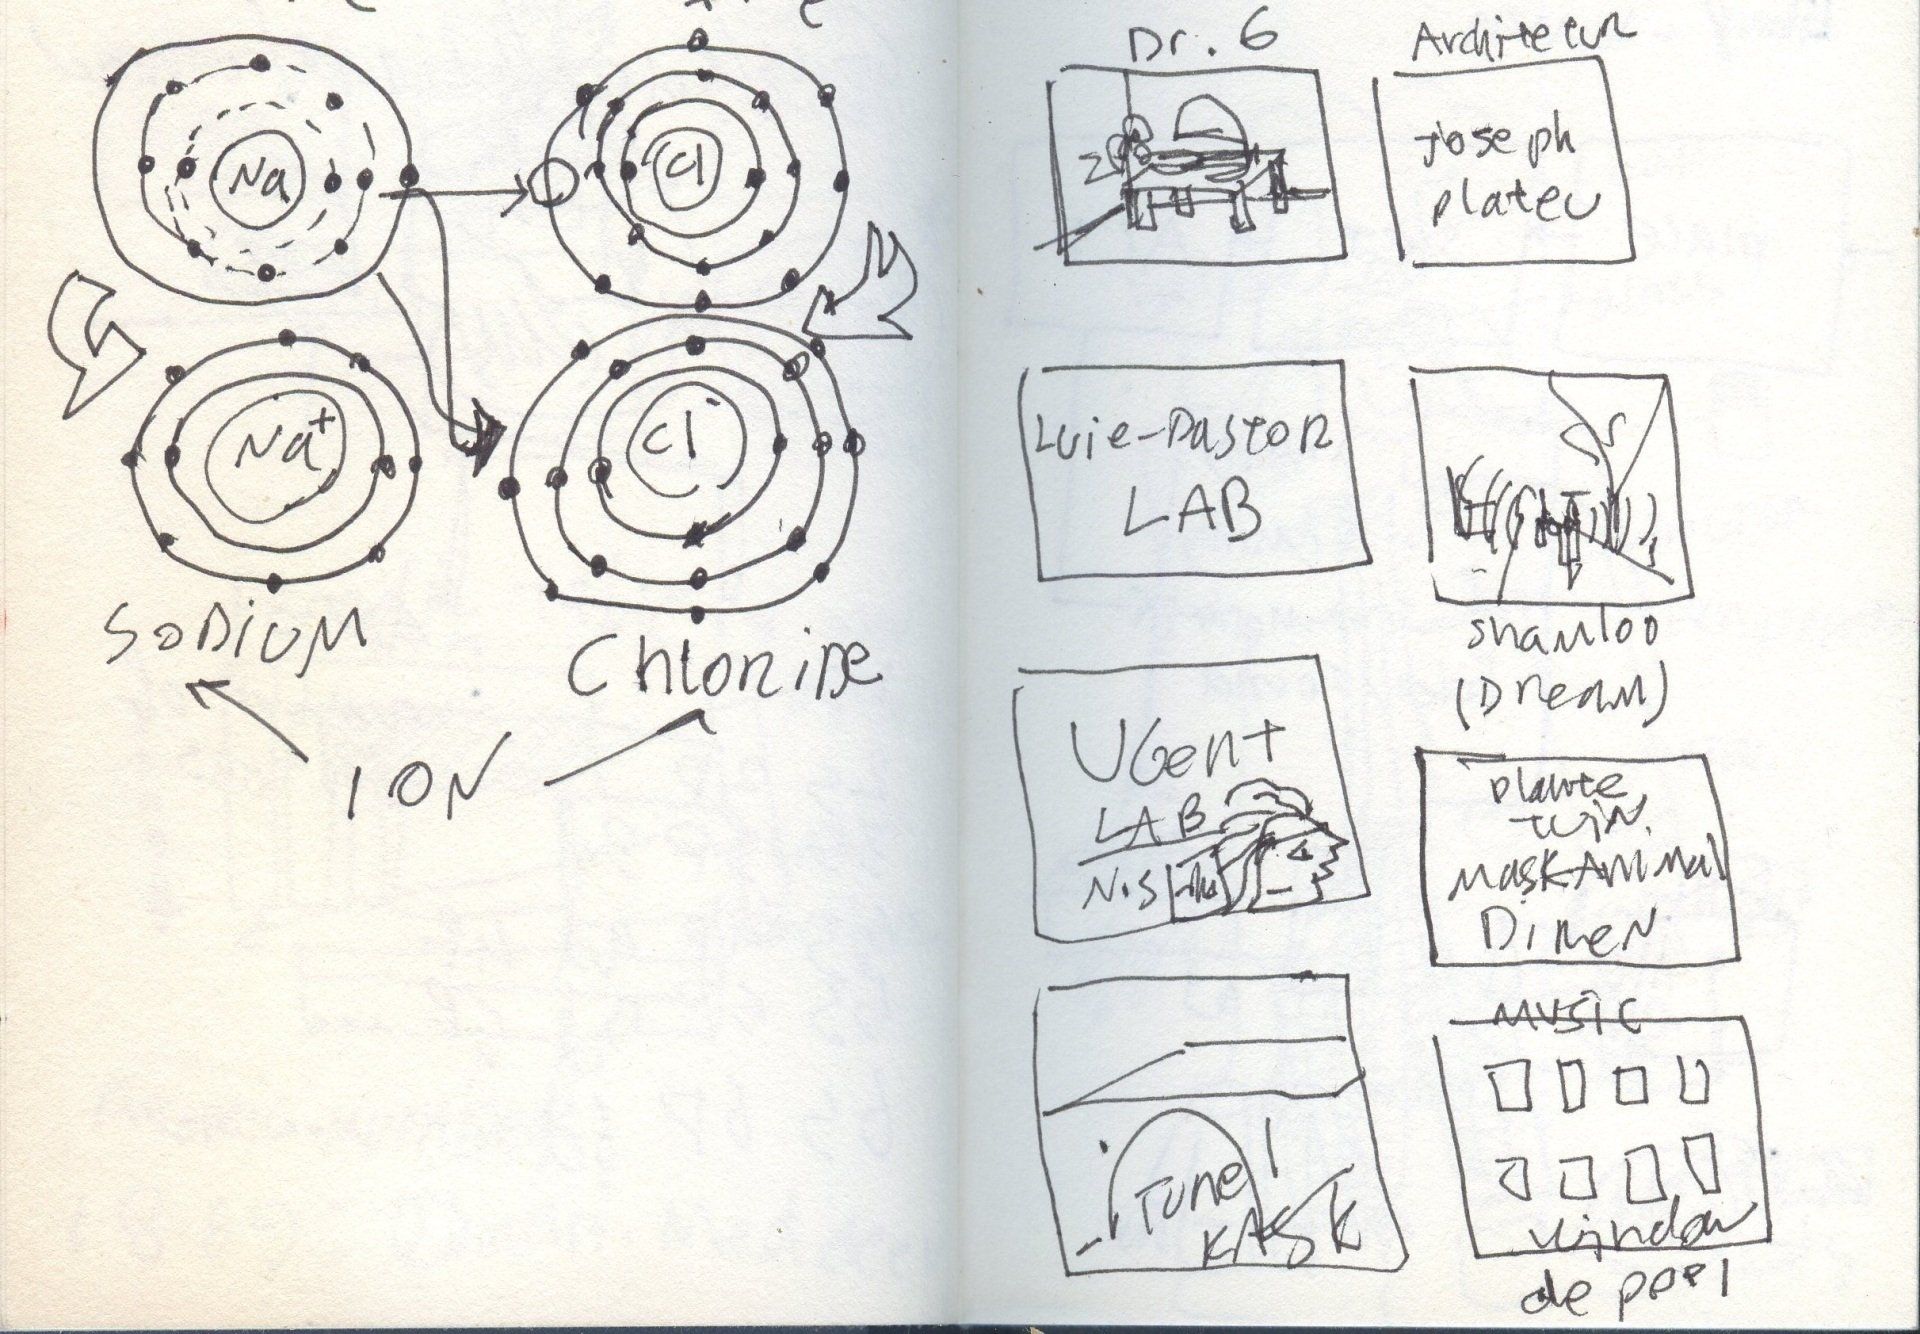 Na
Cl
Na+
Cl-
SODIUM
ChloriDe
ION
Dr. 6
Architectur
Joseph
plateu
Luie-Pastor
LAB
shamloo
(Dream)
UGent
LAB
plante
tuin
MaskAnimal
Dimen
Tunel
KASK
MUSIC
window
de pool